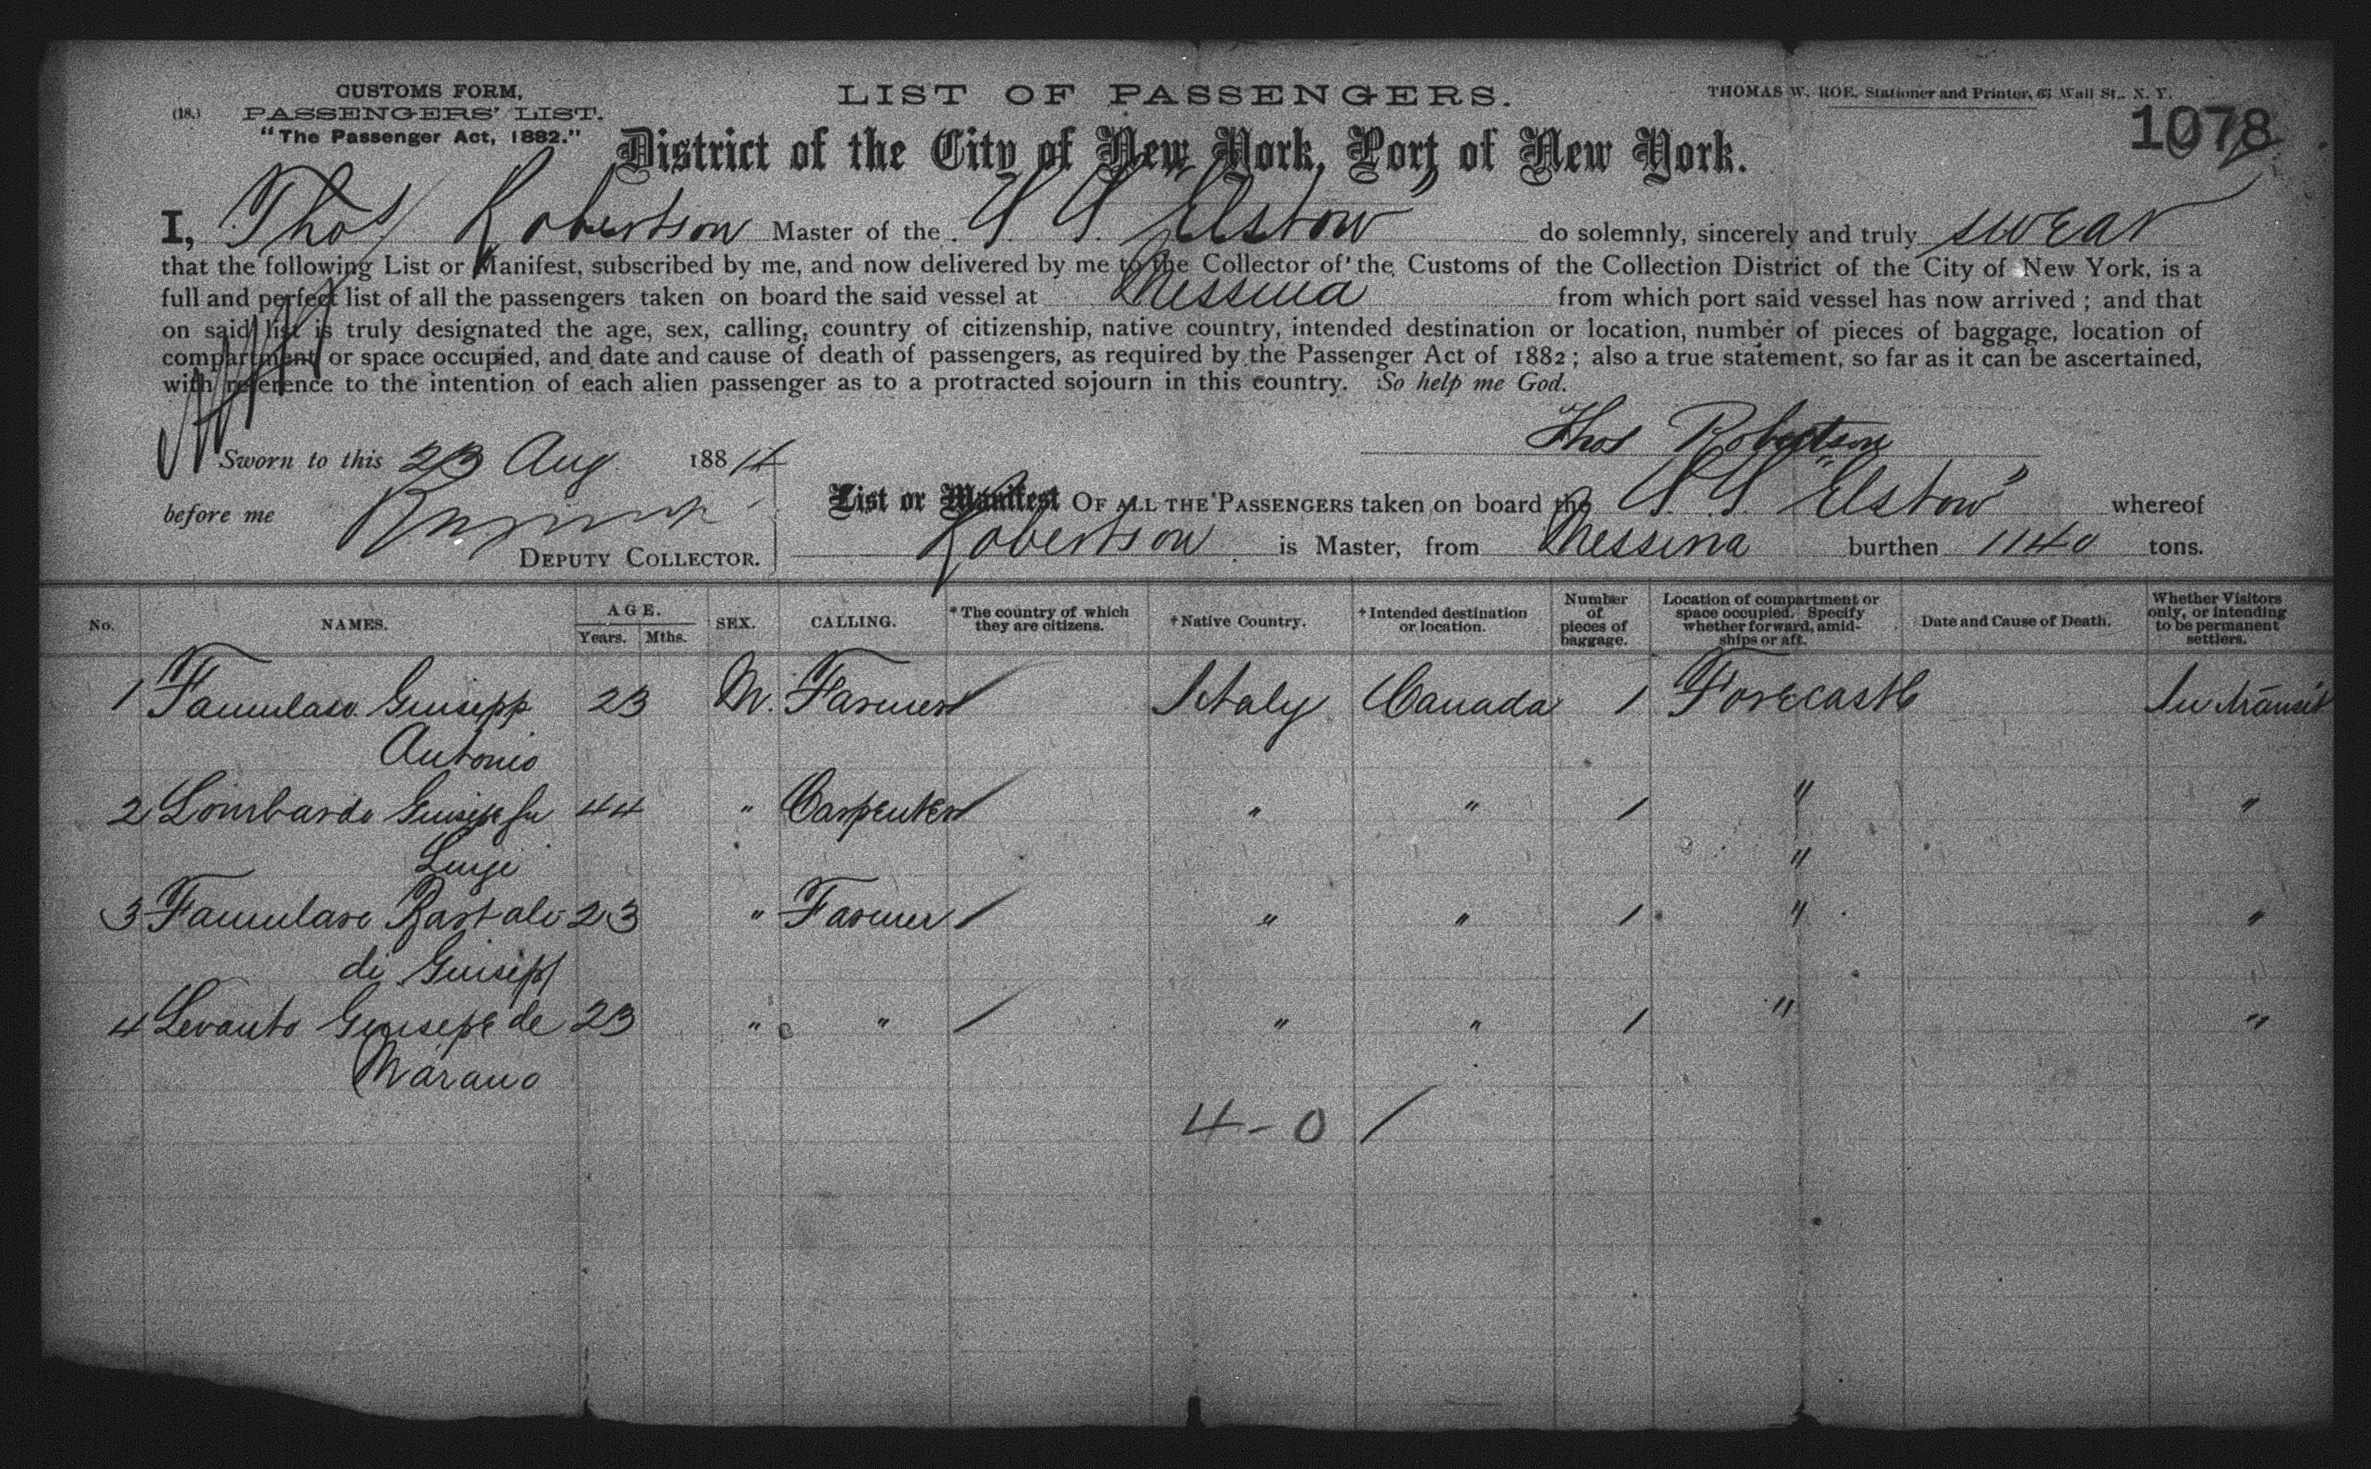 CUSTOMS FORM,
(18.) PASSENGERS' LIST.
"The Passenger Act, 1882."
LIST OF PASSENGERS.
THOMAS W. ROE, Stationer and Printer, 63 Wall St., N. Y.
1078
District of the City of New York, Port of New York.
I, Thos Robertson Master of the S. S. Elstow do solemnly, sincerely and truly swear
that the following List or Manifest, subscribed by me, and now delivered by me to the Collector of the Customs of the Collection District of the City of New York, is a
full and perfect list of all the passengers taken on board the said vessel at Messina from which port said vessel has now arrived; and that
on said list is truly designated the age, sex, calling, country of citizenship, native country, intended destination or location, number of pieces of baggage, location of
compartment or space occupied, and date and cause of death of passengers, as required by the Passenger Act of 1882; also a true statement, so far as it can be ascertained,
with reference to the intention of each alien passenger as to a protracted sojourn in this country. So help me God.
Thos Robertson
Sworn to this 23 Aug 1884
before me
DEPUTY COLLECTOR.
List or Manifest OF ALL THE PASSENGERS taken on board the S. S. "Elstow" whereof
Robertson is Master, from Messina burthen 1140 tons.
No. NAMES. AGE. Years. Mths. SEX. CALLING. * The country of which they are citizens. † Native Country. † Intended destination or location. Number of pieces of baggage. Location of compartment or space occupied. Specify whether forward, amidships or aft. Date and Cause of Death. Whether Visitors only, or intending to be permanent settlers.
1 Famularo Guisepp 23 M. Farmer / Italy Canada 1 Forecastle In transit
Antonio
2 Lombardo Guisepe fu 44 " Carpenter / " " 1 " "
Luigi "
3 Famularo Bartalo 23 " Farmer / " " 1 " "
di Guisepp
4 Levanto Guisepe de 23 " " / " " 1 " "
Marano
4 - 0 /